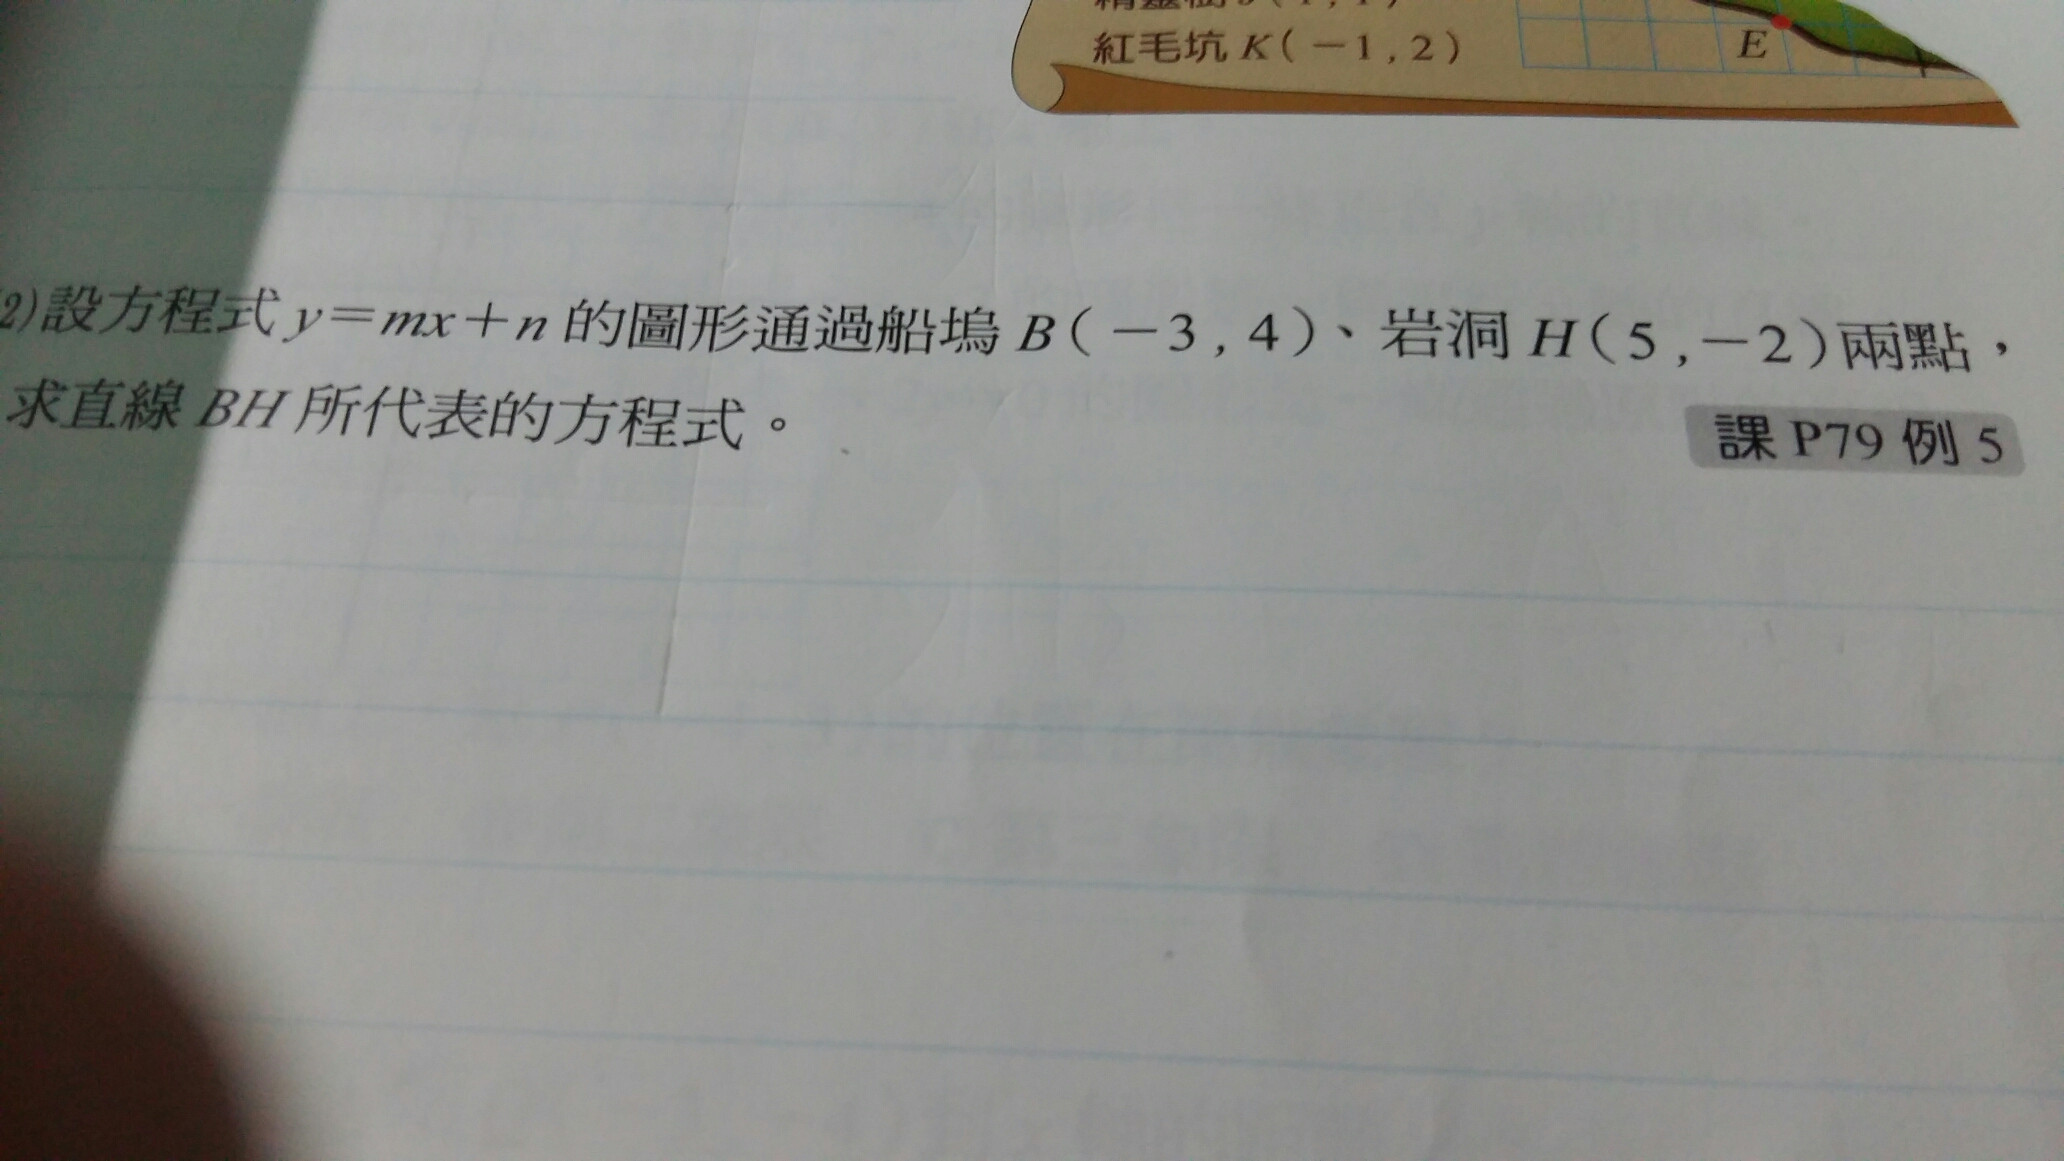 紅毛坑 K(－1 , 2)
E
(2)設方程式 y＝mx＋n 的圖形通過船塢 B(－3 , 4)、岩洞 H(5 ,－2)兩點，
求直線 BH 所代表的方程式。
課 P79 例 5